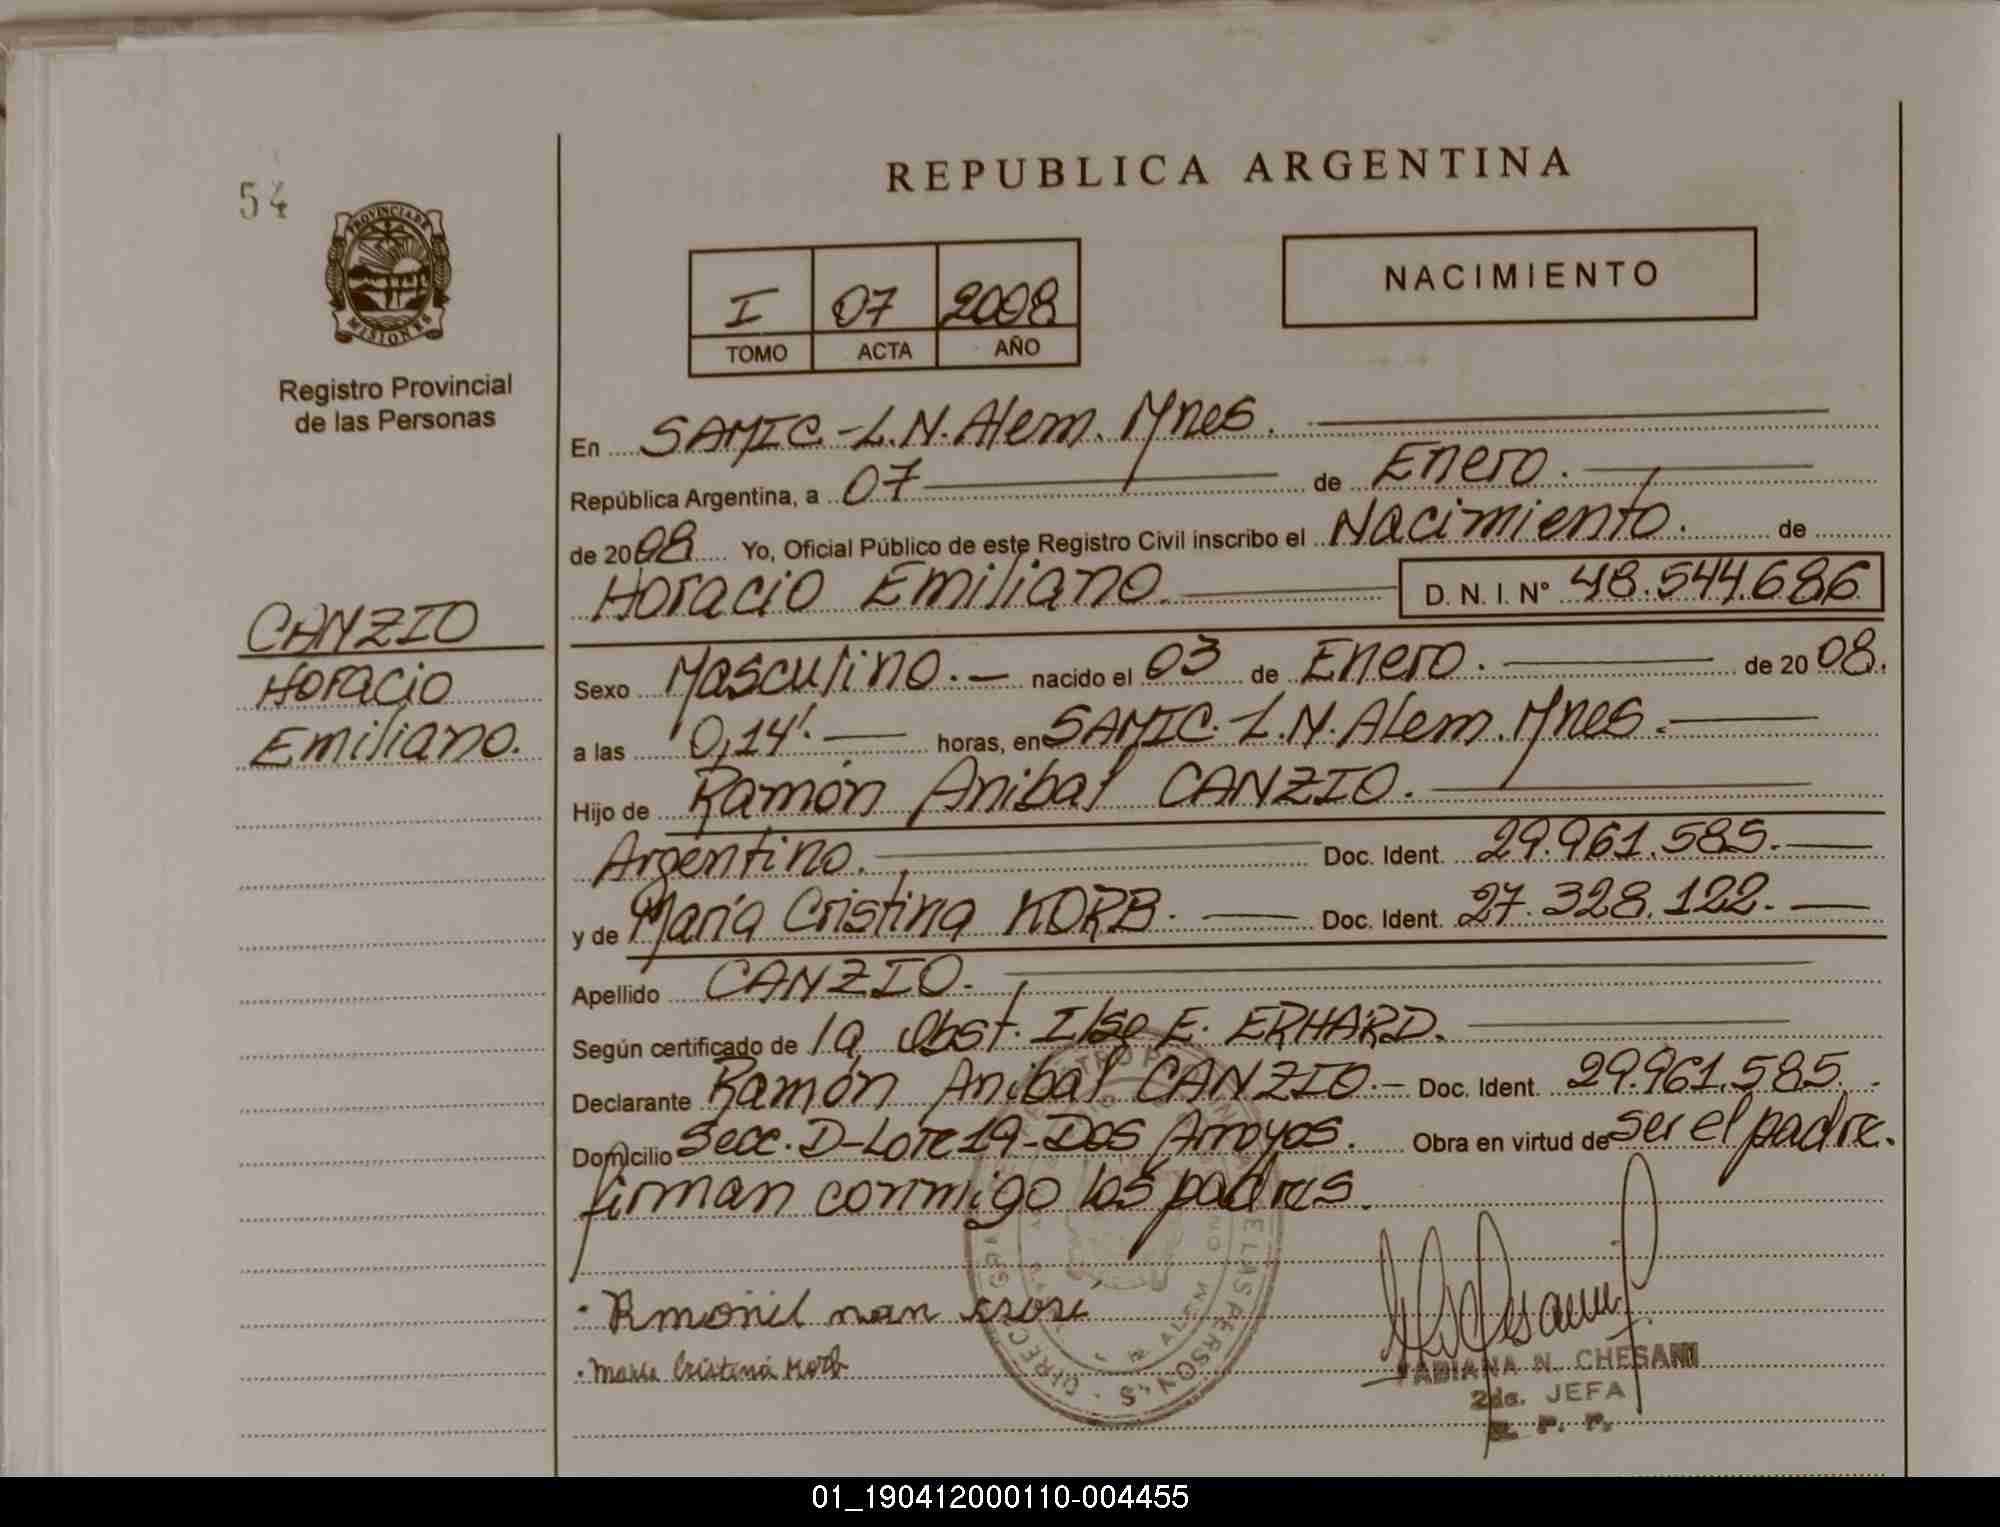 54
PROVINCIA DE
MISIONES
Registro Provincial
de las Personas
CANZIO
Horacio
Emiliano.
REPUBLICA ARGENTINA
I 07 2008
TOMO ACTA AÑO
NACIMIENTO
En SAMIC-L.N.Alem. Mnes.
República Argentina, a 07 de Enero.
de 2008 Yo, Oficial Público de este Registro Civil inscribo el Nacimiento. de
Horacio Emiliano. D. N. I. Nº 48.544.686
Sexo Masculino.- nacido el 03 de Enero. de 2008.
a las 0,14'. horas, en SAMIC. L.N.Alem. Mnes.
Hijo de Ramón Anibal CANZIO.
Argentino. Doc. Ident. 29.961.585.
y de María Cristina KORB. Doc. Ident. 27.328.122.
Apellido CANZIO.
Según certificado de la Obst. Ilse E. ERHARD.
Declarante Ramón Anibal CANZIO.- Doc. Ident. 29.961.585.-
Domicilio Secc. D-Lote 19-Dos Arroyos. Obra en virtud de ser el padre.
firman conmigo los padres.
Maria Cristina Korb
FABIANA N. CHESANI
2da. JEFA
R. P. P.
01_190412000110-004455